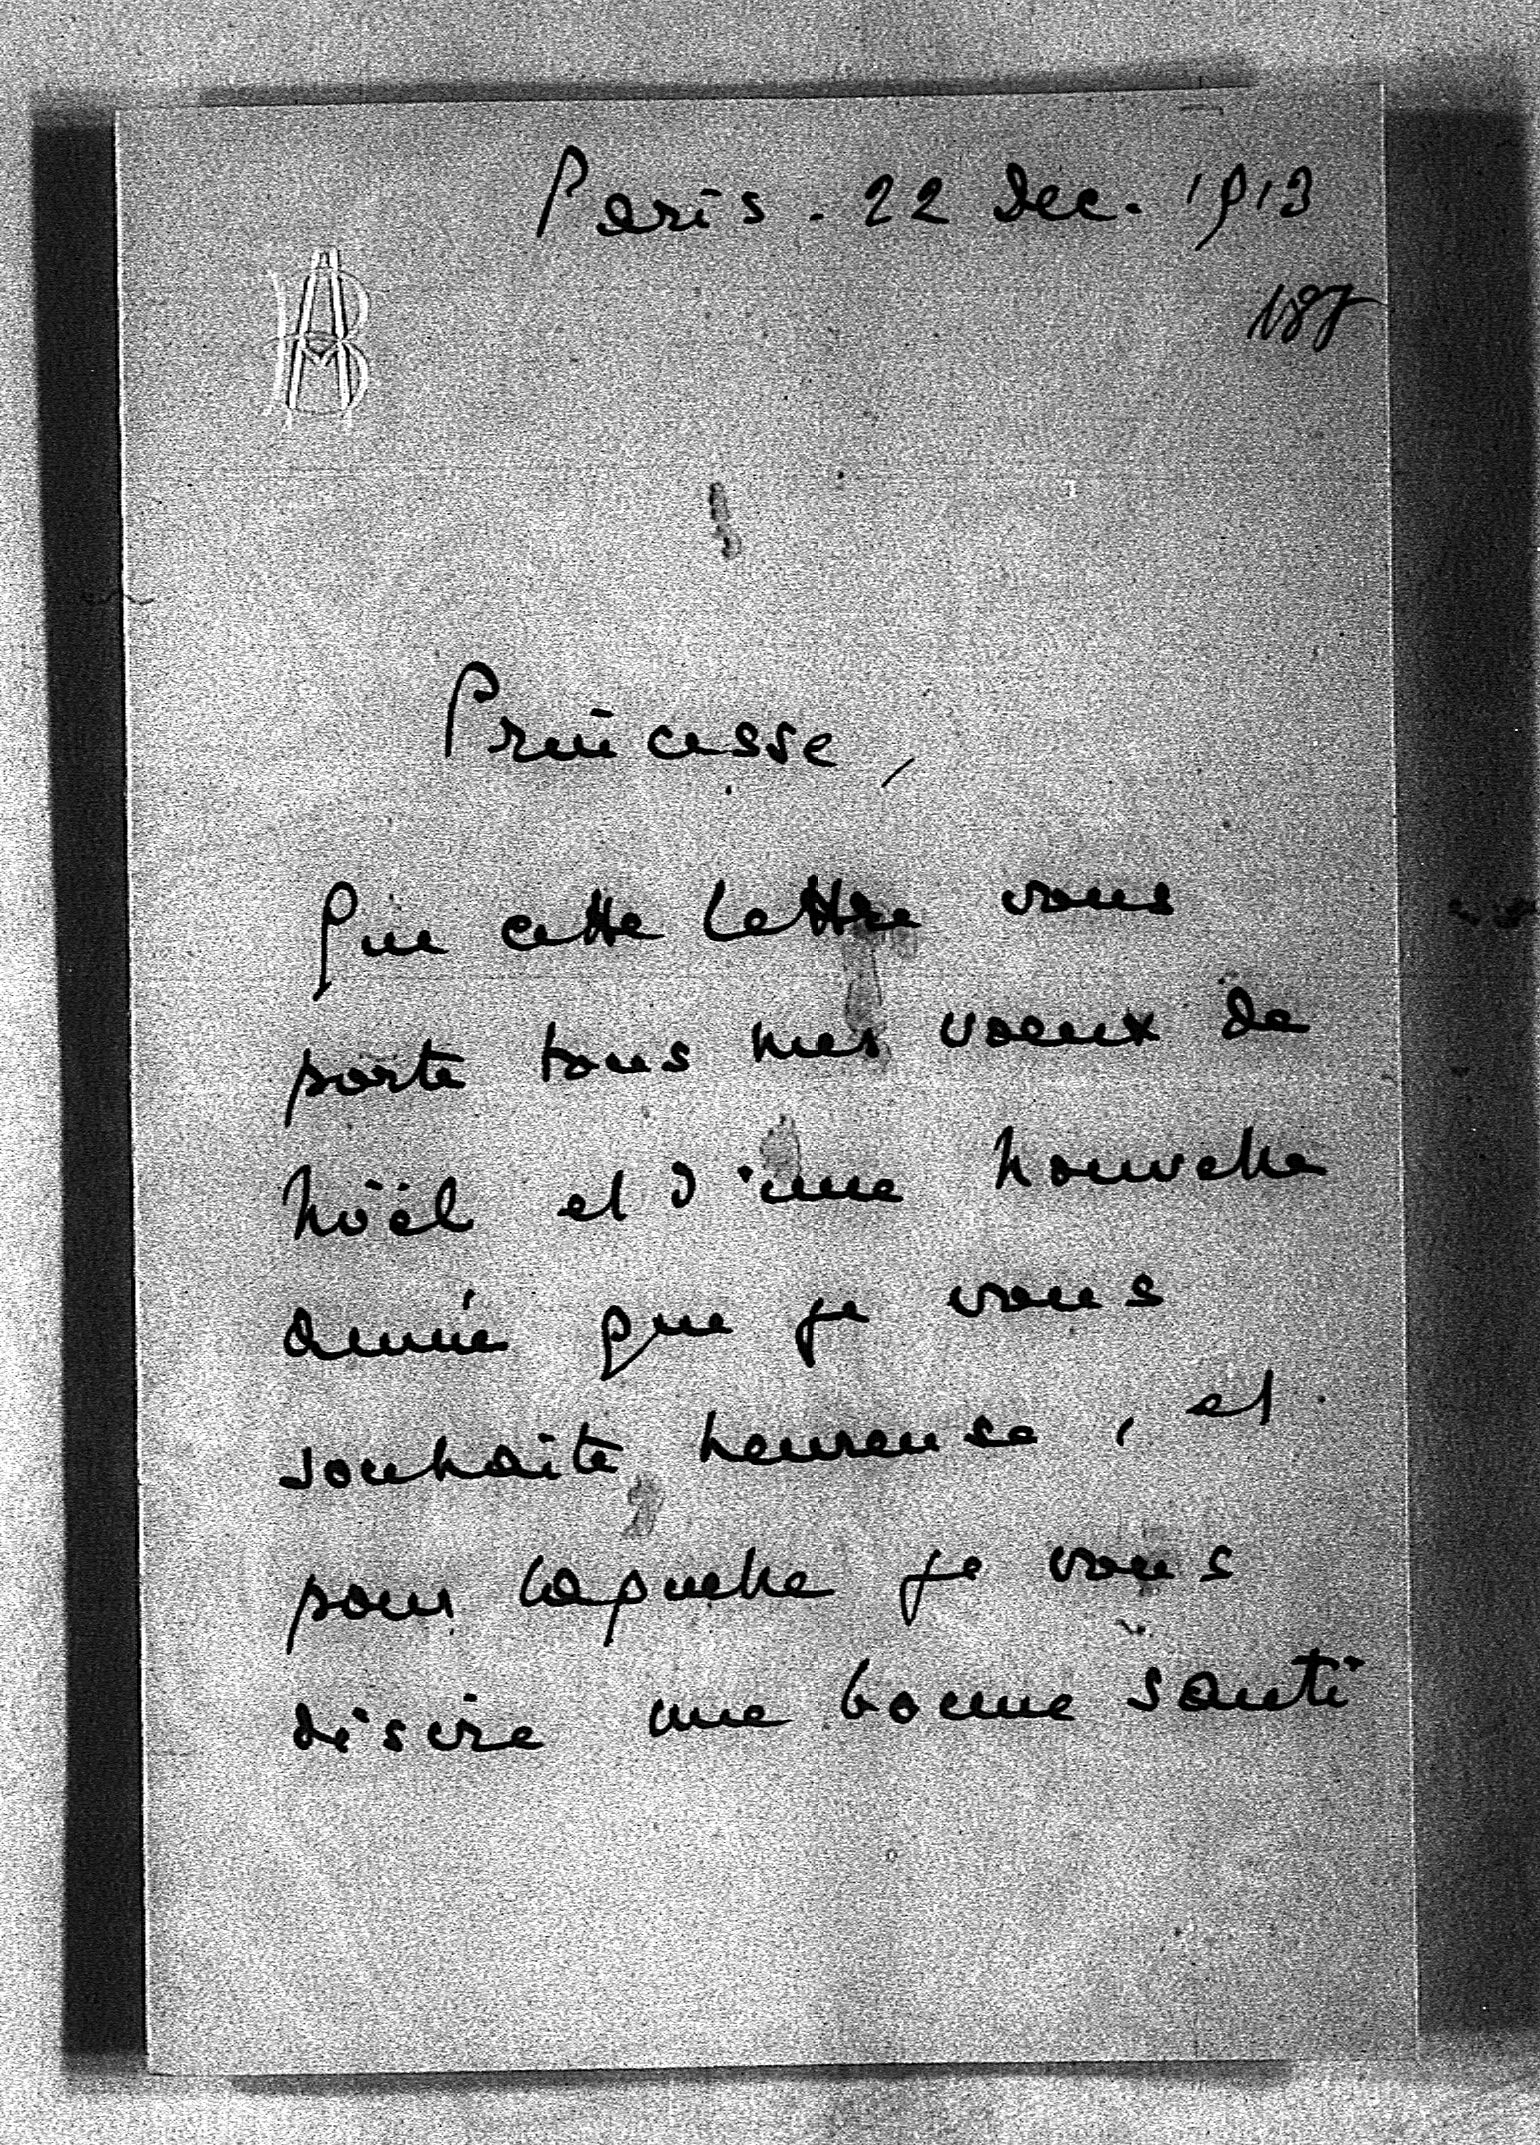 Paris. 22 Dec. 1913
187
Princesse,
Que cette lettre vous
porte tous mes voeux de
Noël et d'une nouvelle
année que je vous
souhaite heureuse, et
pour laquelle je vous
désire une bonne santé